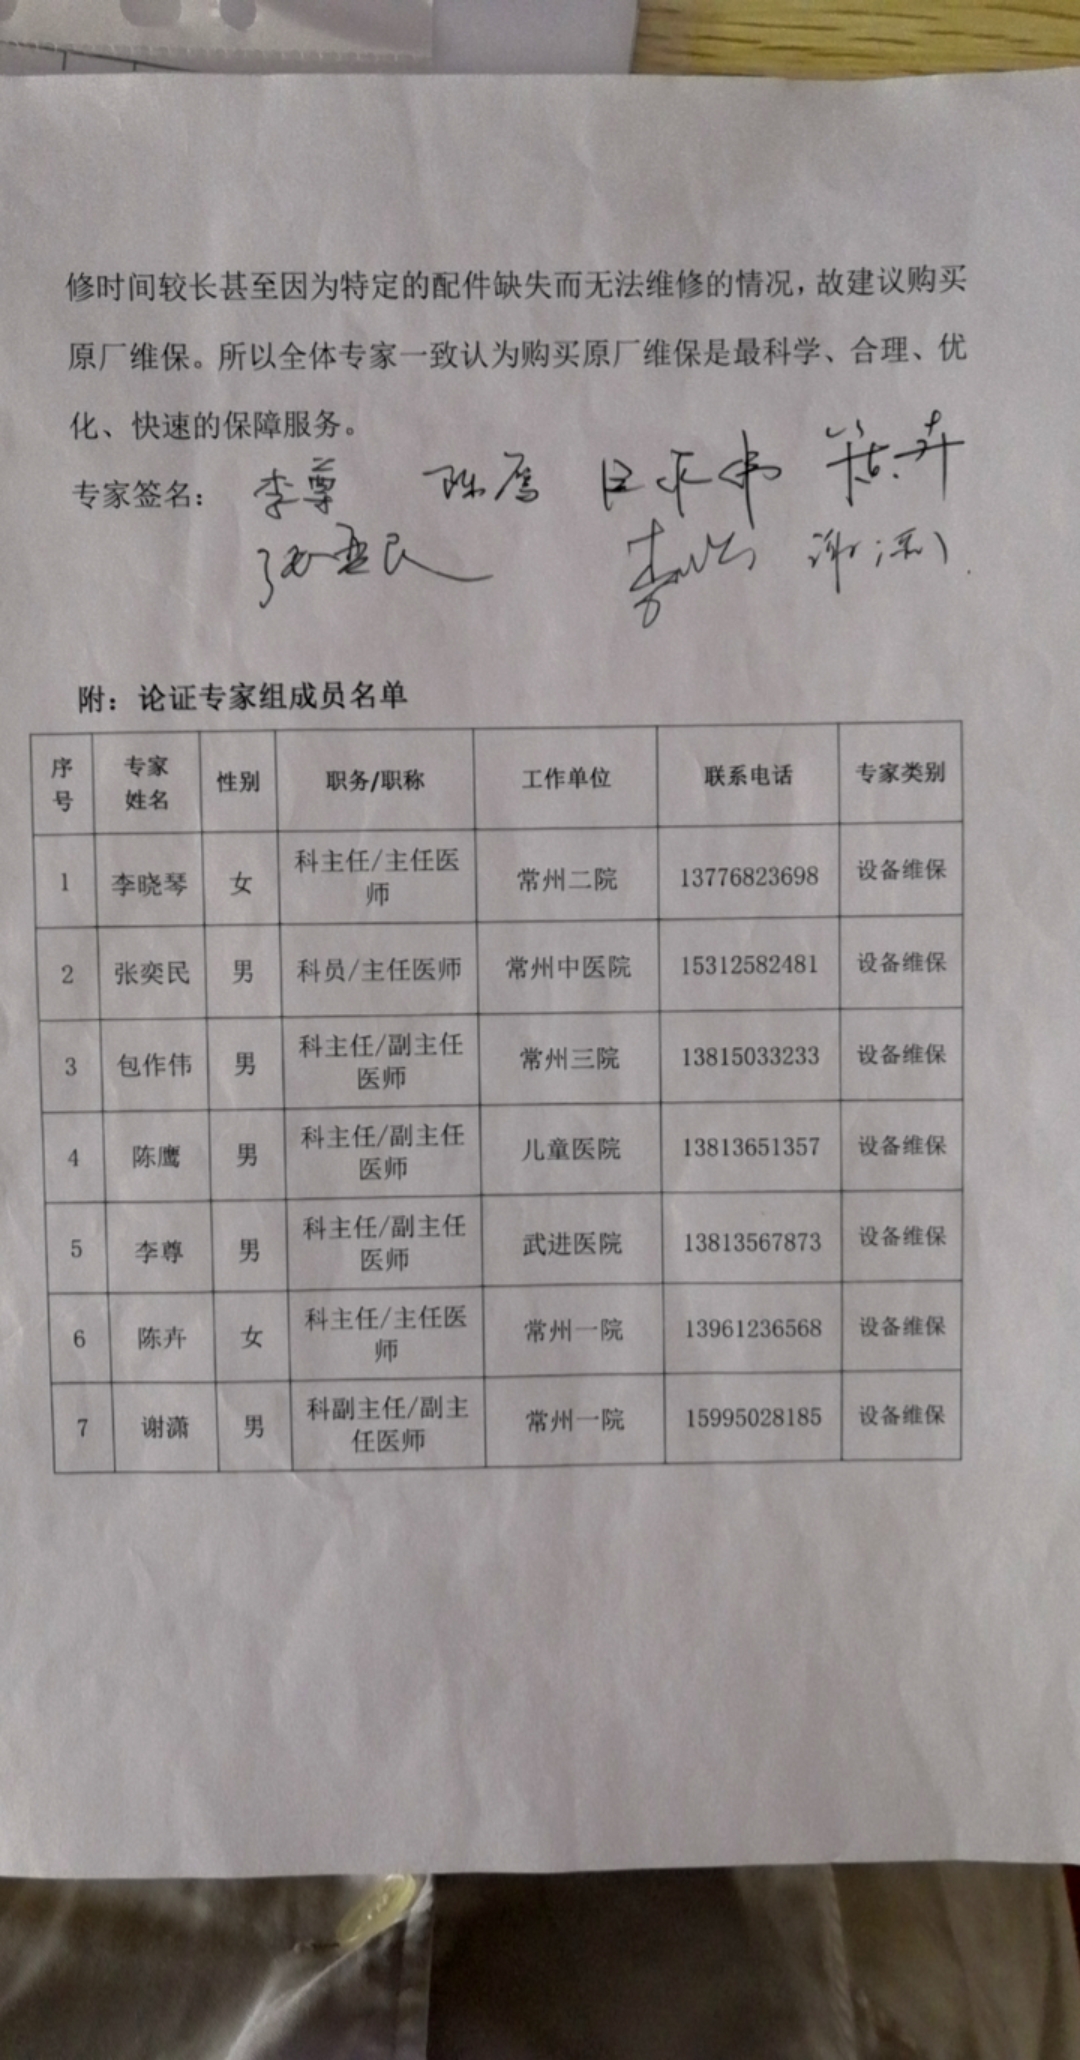 修时间较长甚至因为特定的配件缺失而无法维修的情况，故建议购买
原厂维保。所以全体专家一致认为购买原厂维保是最科学、合理、优
化、快速的保障服务。
专家签名： 李尊 陈鹰
附：论证专家组成员名单
序号 专家姓名 性别 职务/职称 工作单位 联系电话 专家类别
1 李晓琴 女 科主任/主任医师 常州二院 13776823698 设备维保
2 张奕民 男 科员/主任医师 常州中医院 15312582481 设备维保
3 包作伟 男 科主任/副主任医师 常州三院 13815033233 设备维保
4 陈鹰 男 科主任/副主任医师 儿童医院 13813651357 设备维保
5 李尊 男 科主任/副主任医师 武进医院 13813567873 设备维保
6 陈卉 女 科主任/主任医师 常州一院 13961236568 设备维保
7 谢潇 男 科副主任/副主任医师 常州一院 15995028185 设备维保